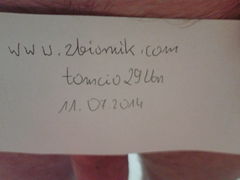 www.zbiornik.com
tomcio29lbn
11.07.2014